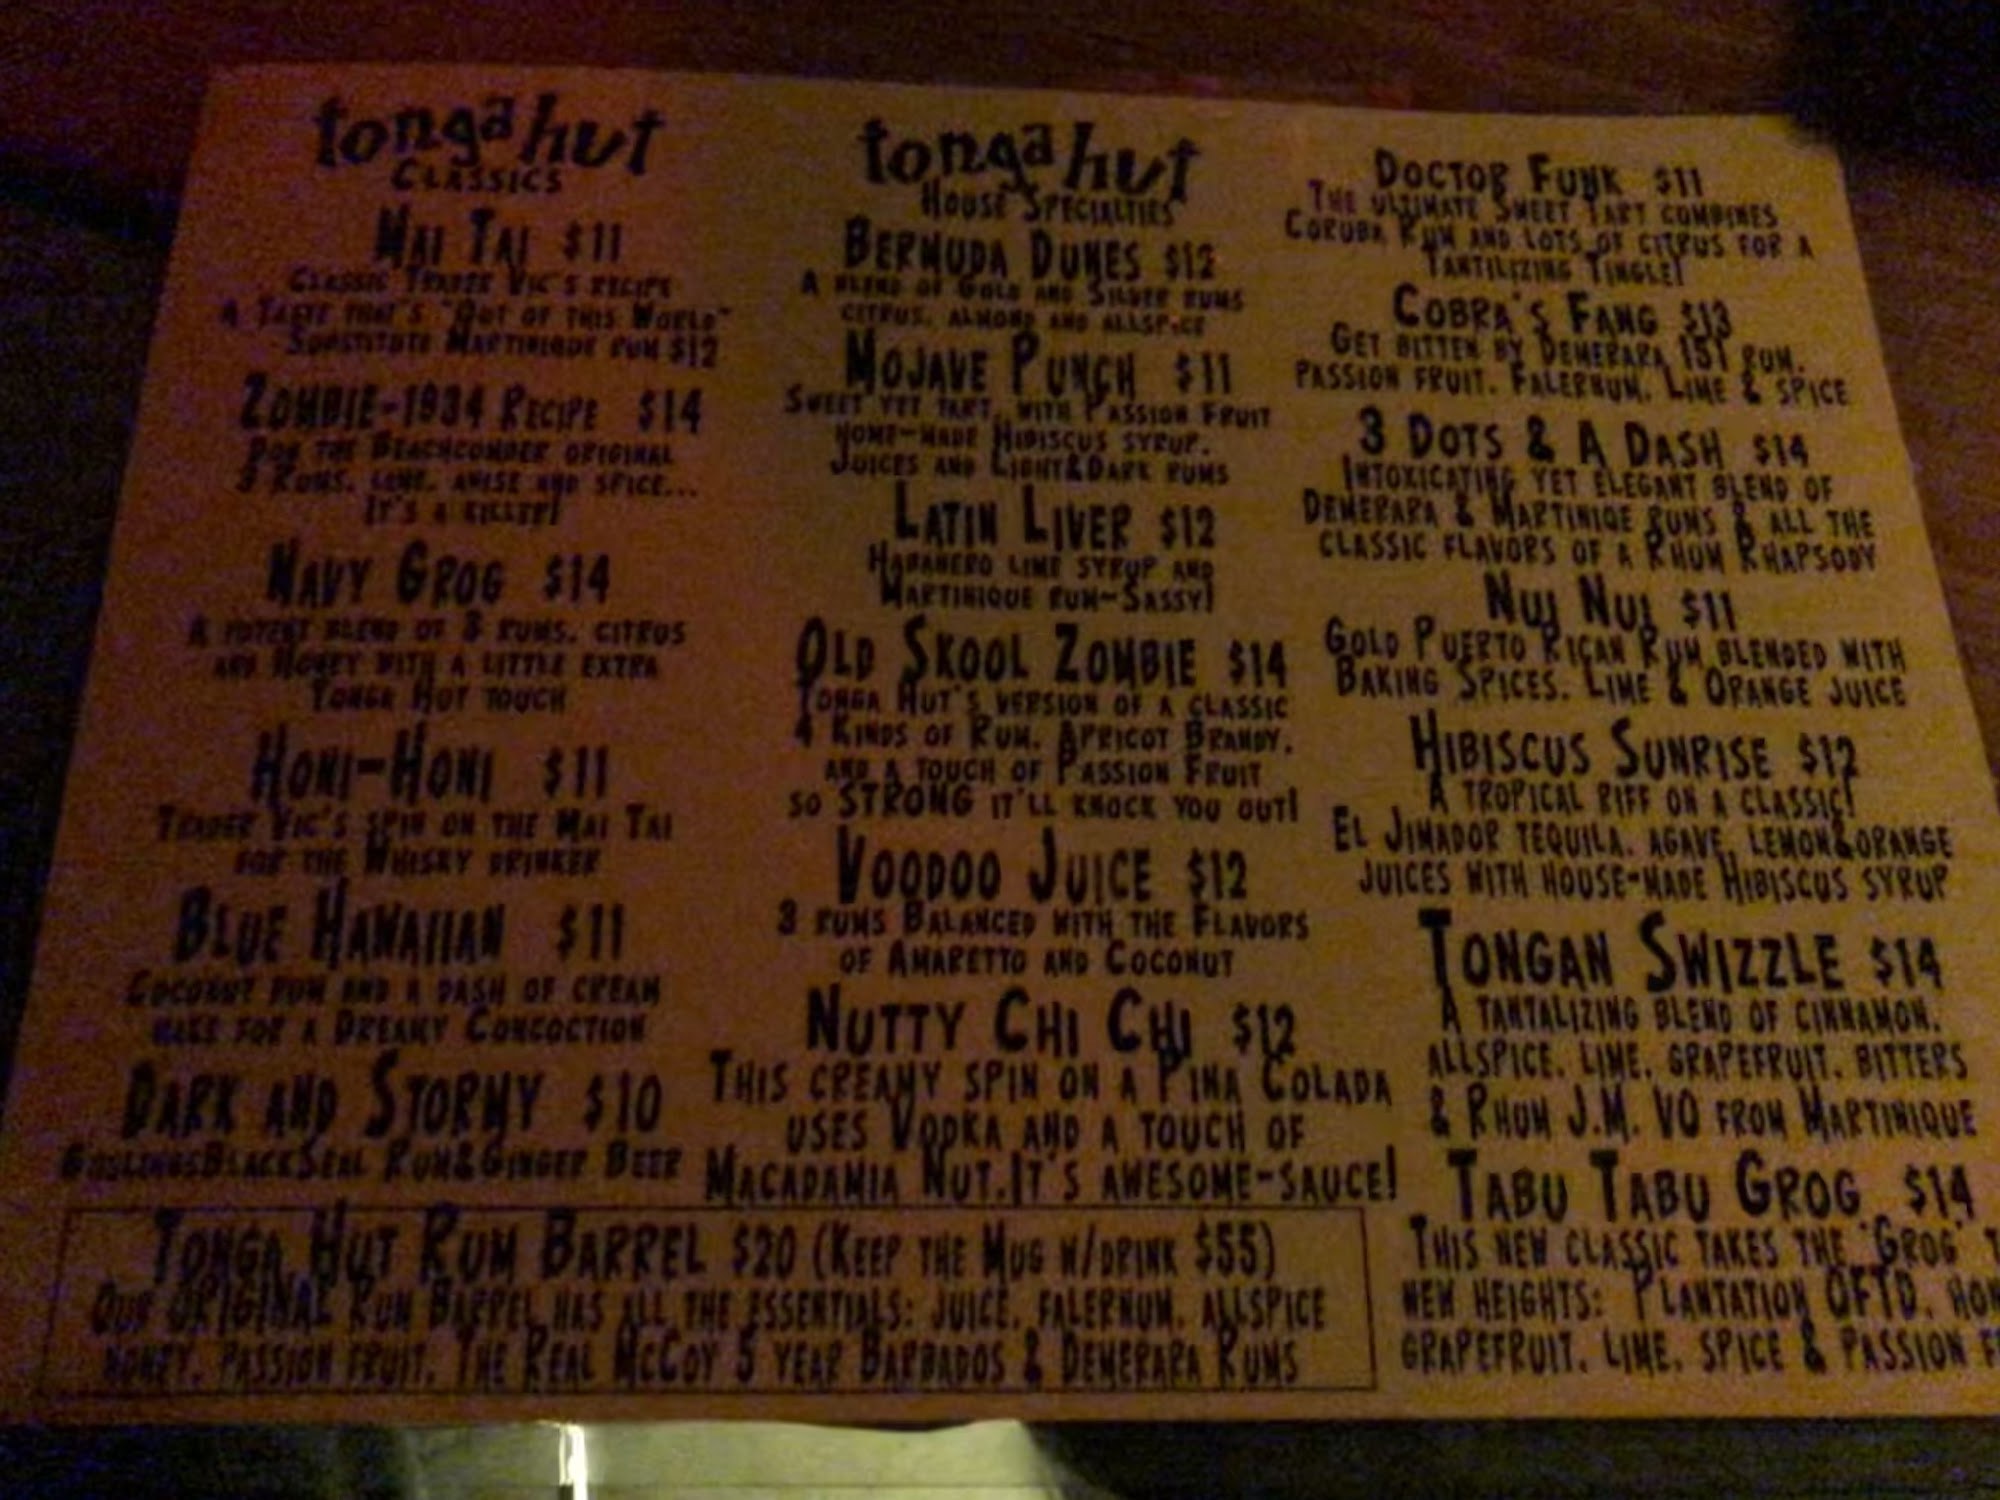 tonga hut
Classics
Mai Tai $11
Classic Trader Vic's recipe
A Taste that's "Out of this World"
Substitute Martinique rum $12
Zombie-1934 Recipe $14
Don the Beachcomber original
3 Rums, lime, anise and spice...
It's a killer!
Navy Grog $14
A potent blend of 3 rums, citrus
and Honey with a little extra
Tonga Hut touch
Honi-Honi $11
Trader Vic's spin on the Mai Tai
for the Whisky drinker
Blue Hawaiian $11
Coconut rum and a dash of cream
make for a Dreamy Concoction
Dark and Stormy $10
GoslingsBlackSeal Rum&Ginger Beer
tonga hut
House Specialties
Bermuda Dunes $12
A blend of Gold and Silver rums
citrus, almond and allspice
Mojave Punch $11
Sweet yet tart, with Passion Fruit
home-made Hibiscus syrup,
Juices and Light&Dark rums
Latin Liver $12
Habanero lime syrup and
Martinique rum-Sassy!
Old Skool Zombie $14
Tonga Hut's version of a classic
4 Kinds of Rum, Apricot Brandy,
and a touch of Passion Fruit
so STRONG it'll knock you out!
Voodoo Juice $12
3 rums Balanced with the Flavors
of Amaretto and Coconut
Nutty Chi Chi $12
This creamy spin on a Pina Colada
uses Vodka and a touch of
Macadamia Nut.It's awesome-sauce!
Tonga Hut Rum Barrel $20 (Keep the Mug w/drink $55)
Our ORIGINAL Rum Barrel has all the essentials: juice, falernum, allspice
honey, passion fruit, The Real McCoy 5 year Barbados & Demerara Rums
Doctor Funk $11
The ultimate Sweet Tart combines
Coruba Rum and lots of citrus for a
Tantilizing Tingle!
Cobra's Fang $13
Get bitten by Demerara 151 rum,
passion fruit, Falernum, Lime & spice
3 Dots & A Dash $14
Intoxicating yet elegant blend of
Demerara & Martiniqe Rums & all the
classic flavors of a Rhum Rhapsody
Nui Nui $11
Gold Puerto Rican Rum blended with
Baking Spices, Lime & Orange juice
Hibiscus Sunrise $12
A tropical riff on a classic!
El Jimador tequila, agave, lemon&orange
juices with house-made Hibiscus syrup
Tongan Swizzle $14
A tantalizing blend of cinnamon,
allspice, lime, grapefruit, bitters
& Rhum J.M. VO from Martinique
Tabu Tabu Grog $14
This new classic takes the "Grog"
new heights: Plantation OFTD,
grapefruit, lime, spice & passion